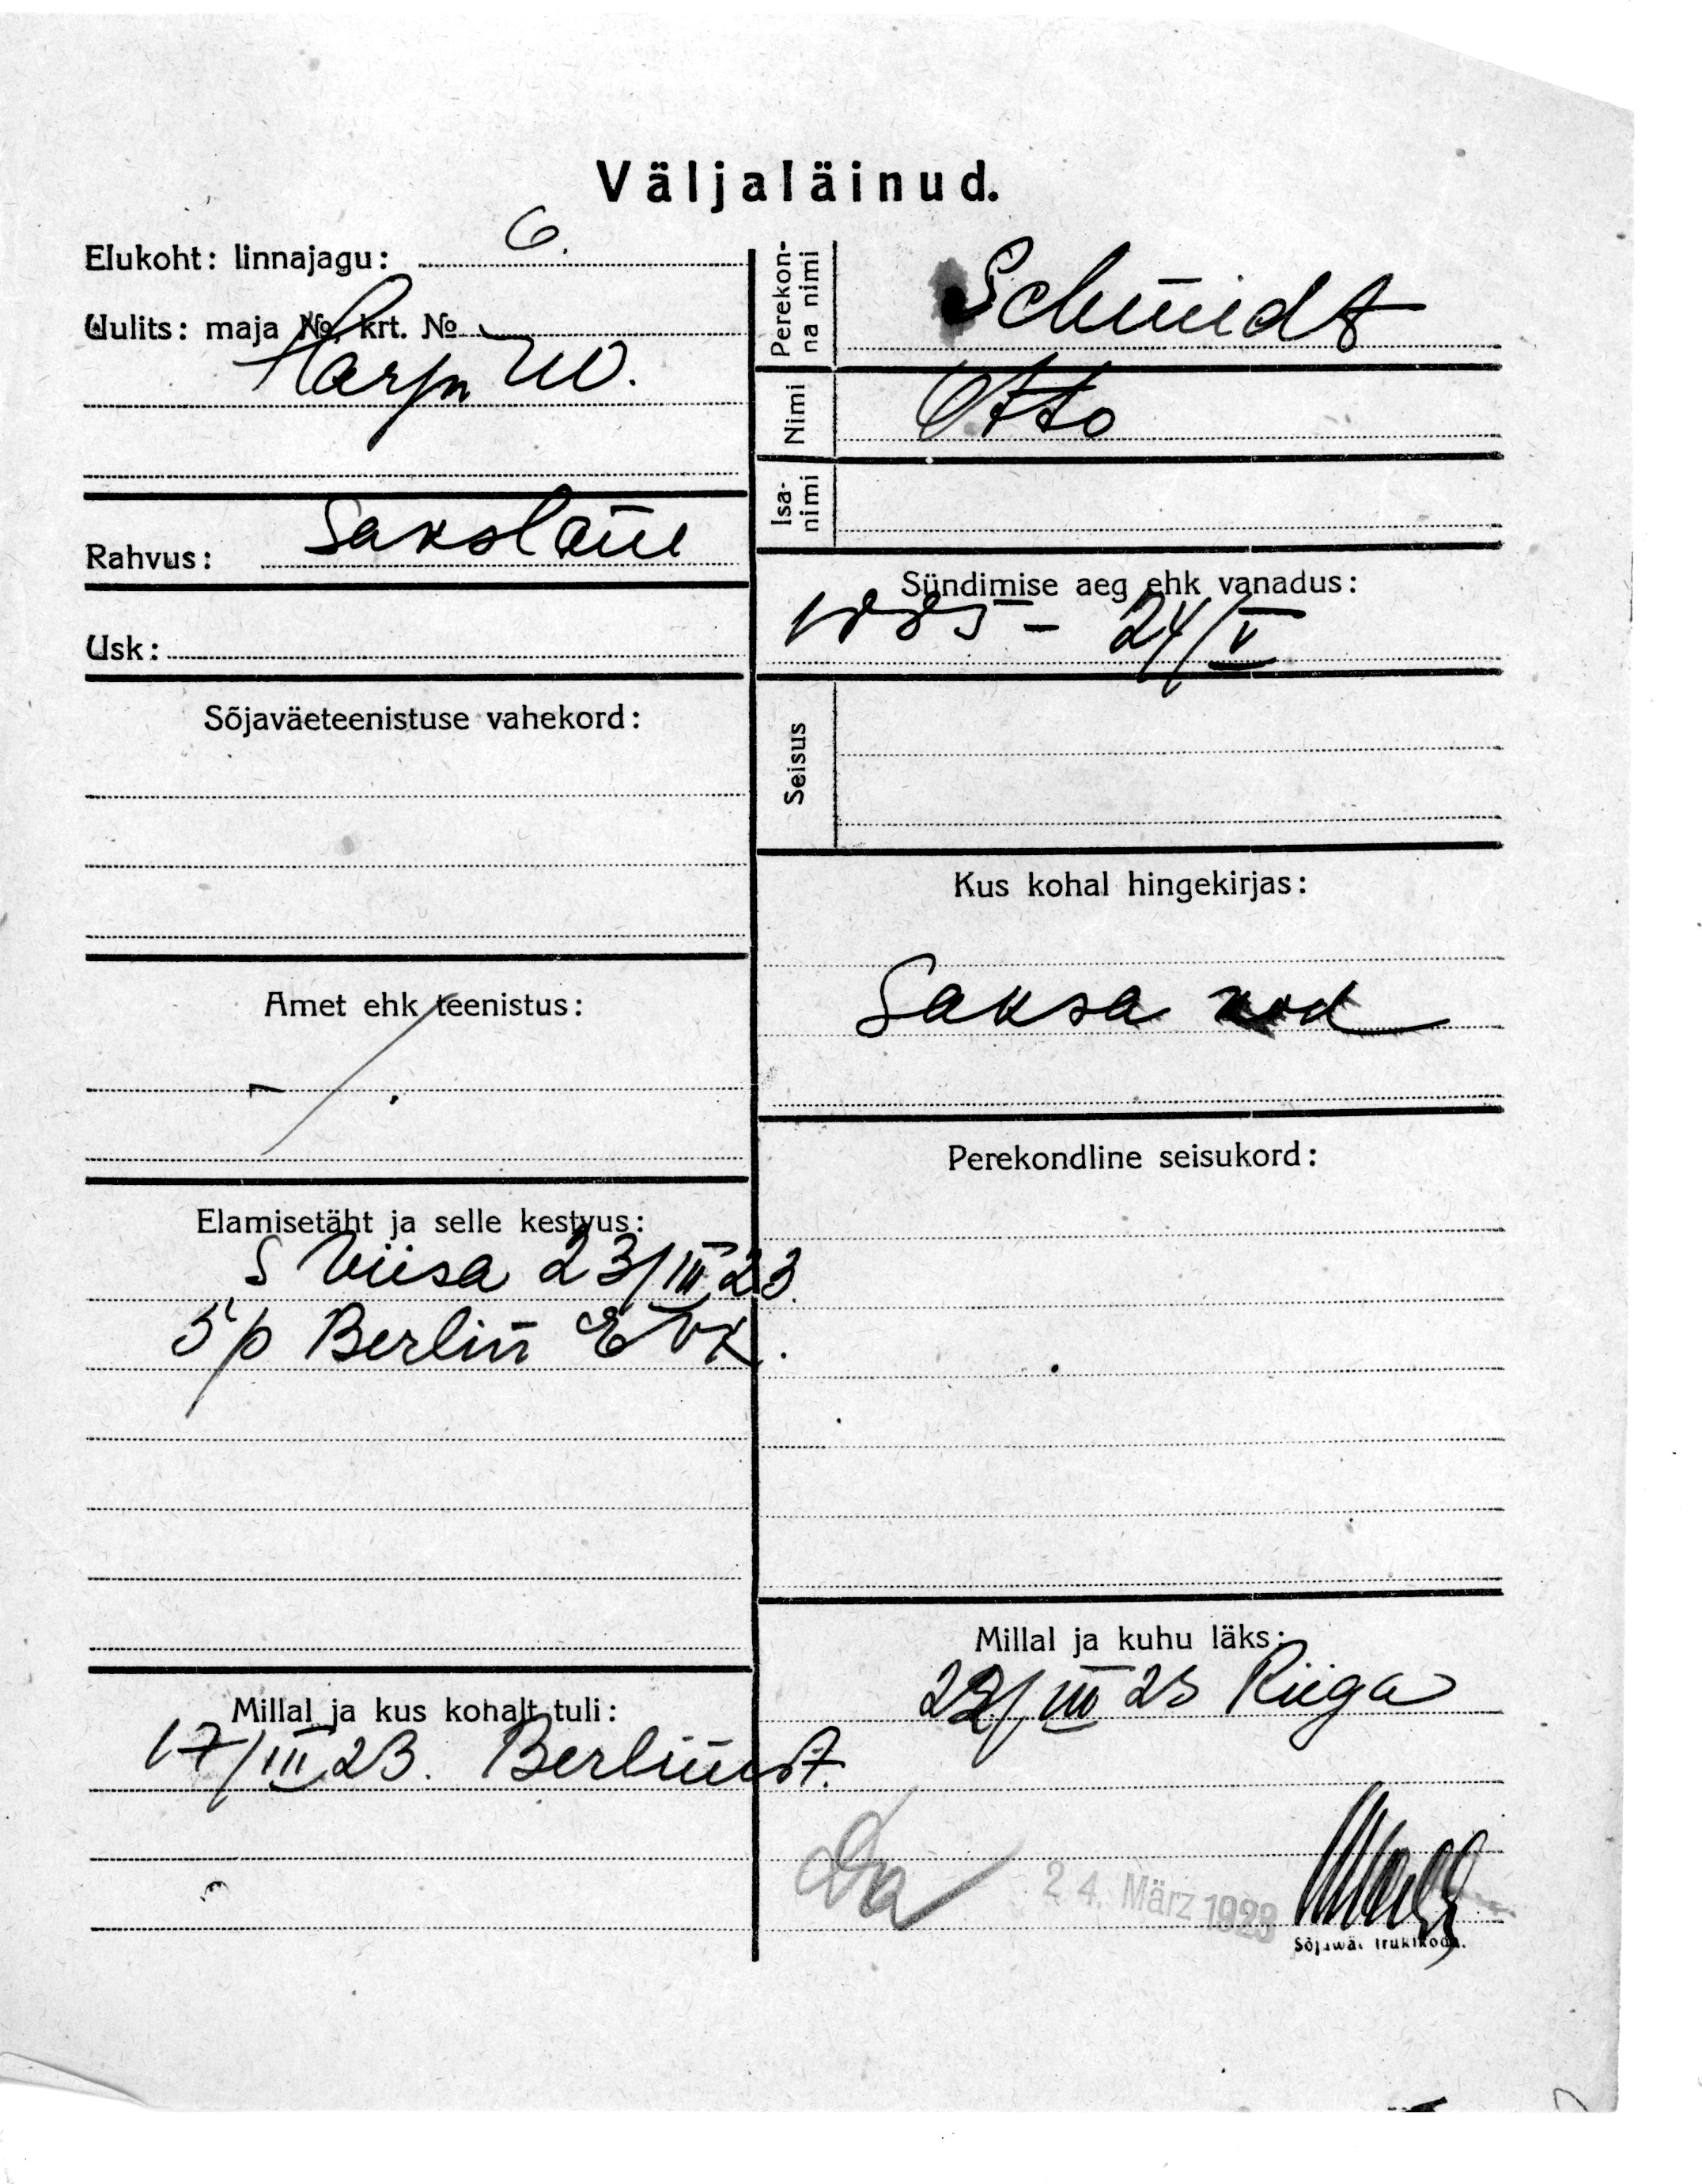 Väljaläinud.
Elukoht: linnajagu: 6.
Uulits: maja № krt. №
Harju 40.
Rahvus: Sakslane
Usk:
Sõjaväeteenistuse vahekord:
Amet ehk teenistus:
Elamisetäht ja selle kestvus:
S Viisa 23/III 23.
5 p Berlin
Millal ja kus kohalt tuli:
17/III 23. Berlinist.
Perekon-
na nimi
Schmidt
Nimi Otto
Isa-
nimi
Sündimise aeg ehk vanadus:
1885 - 24/V
Seisus
Kus kohal hingekirjas:
Saksa kod
Perekondline seisukord:
Millal ja kuhu läks:
22/III 23 Riiga
24. März 1923
Sõjawäe trükikoda.